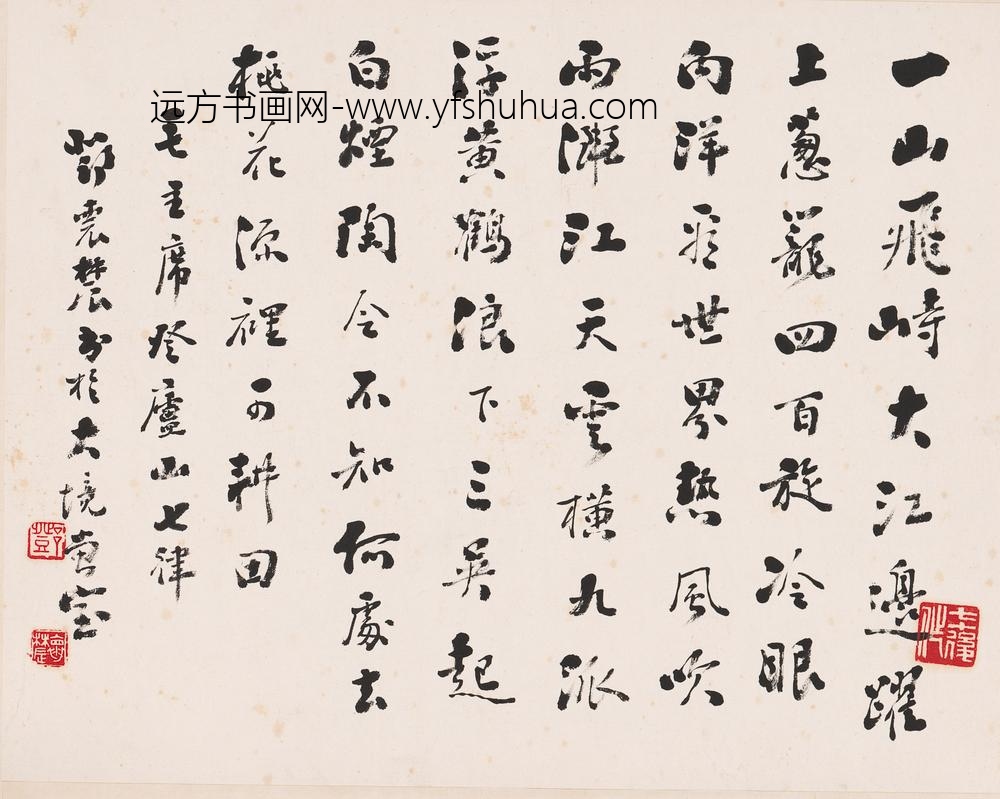 远方书画网-www.yfshuhua.com
一山飛峙大江邊躍
上葱蘢四百旋冷眼
向洋看世界熱風吹
雨灑江天雲橫九派
浮黃鶴浪下三吳起
白煙陶令不知何處去
桃花源裡可耕田
毛主席登廬山七律
鄧褱農書於大境畫室
鄧
懷農